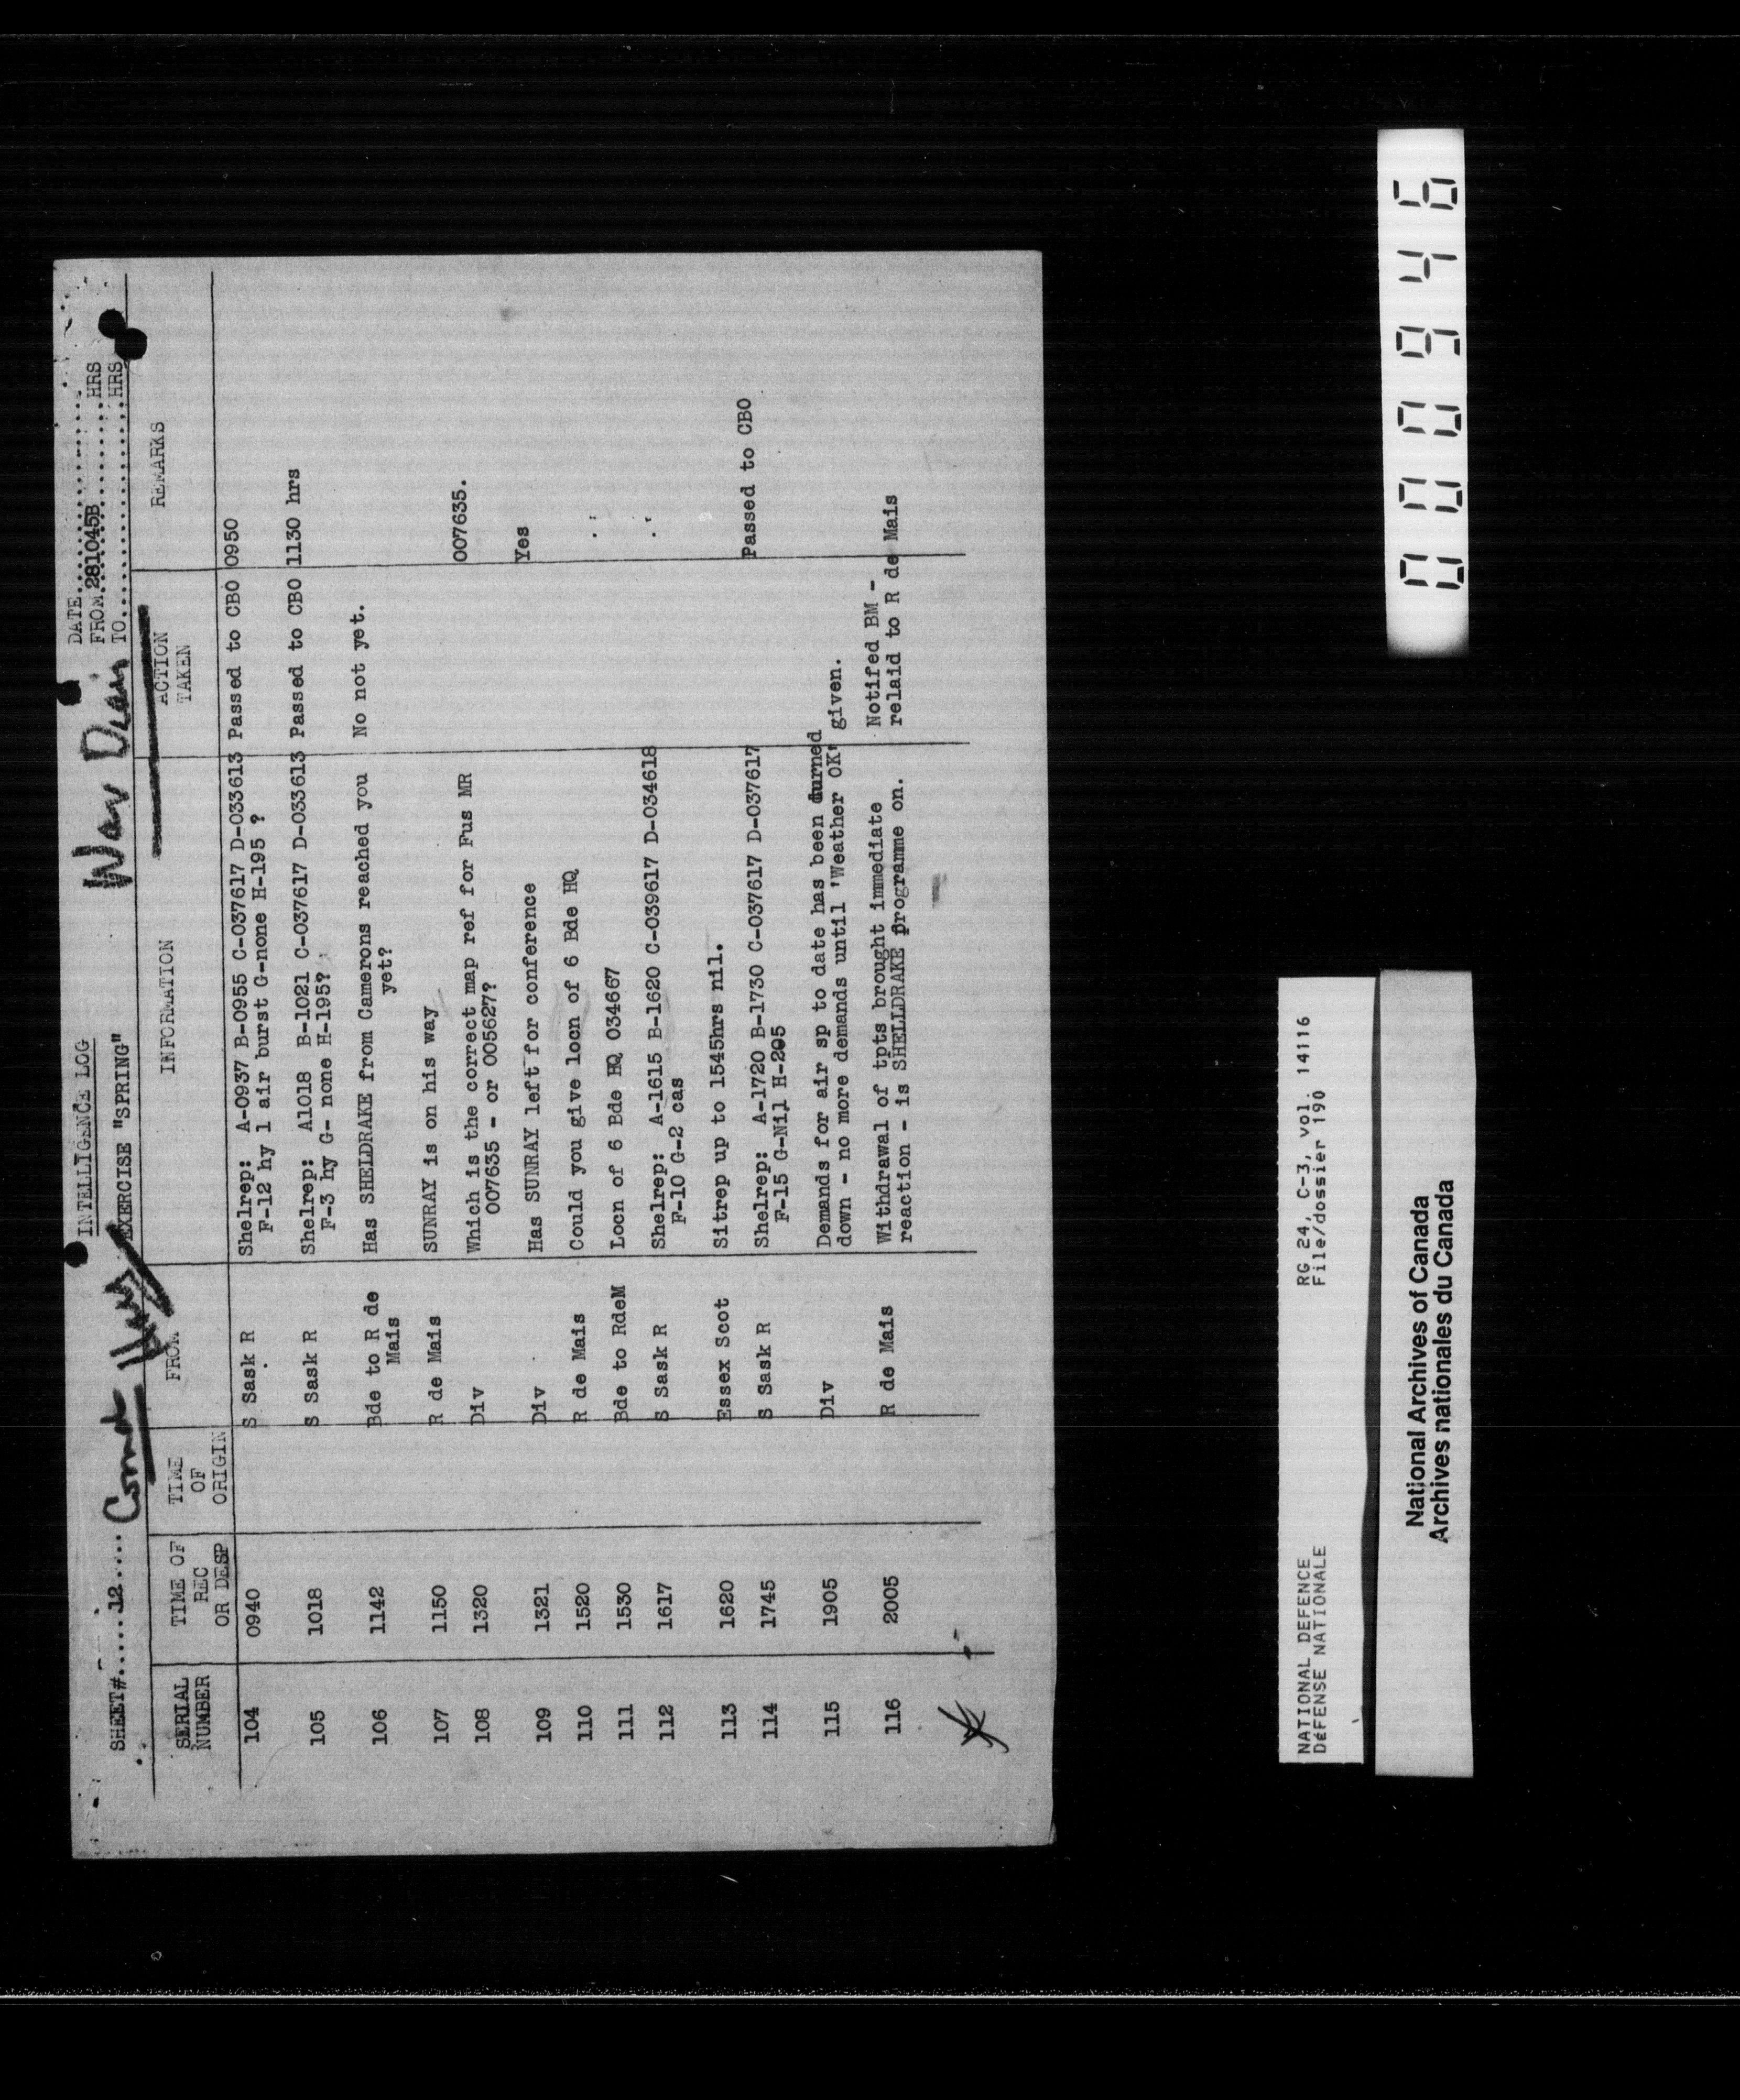 SHEET#.....12.....
INTELLIGENCE LOG
EXERCISE "SPRING"
War Diary
DATE
FROM 281045B HRS
TO HRS
SERIAL NUMBER TIME OF REC OR DESP TIME OF ORIGIN FROM INFORMATION ACTION TAKEN REMARKS
104 0940 S Sask R Shelrep: A-0937 B-0955 C-037617 D-033613 Passed to CBO 0950
F-12 hy 1 air burst G-none H-195 ?
105 1018 S Sask R Shelrep: A1018 B-1021 C-037617 D-033613 Passed to CBO 1130 hrs
F-3 hy G- none H-195?
106 1142 Bde to R de Has SHELDRAKE from Camerons reached you No not yet.
Mais yet?
107 1150 R de Mais SUNRAY is on his way
108 1320 Div Which is the correct map ref for Fus MR 007635.
007635 - or 005627?
109 1321 Div Has SUNRAY left for conference Yes
110 1520 R de Mais Could you give locn of 6 Bde HQ
111 1530 Bde to RdeM Locn of 6 Bde HQ 034667
112 1617 S Sask R Shelrep: A-1615 B-1620 C-039617 D-034618
F-10 G-2 cas
113 1620 Essex Scot Sitrep up to 1545hrs nil.
114 1745 S Sask R Shelrep: A-1720 B-1730 C-037617 D-037617 Passed to CBO
F-15 G-Nil H-205
115 1905 Div Demands for air sp to date has been durned
down - no more demands until 'Weather OK' given.
116 2005 R de Mais Withdrawal of tpts brought immediate Notifed BM -
reaction - is SHELLDRAKE programme on. relaid to R de Mais
NATIONAL DEFENCE RG 24, C-3, vol. 14116
DÉFENSE NATIONALE File/dossier 190
National Archives of Canada
Archives nationales du Canada
000946